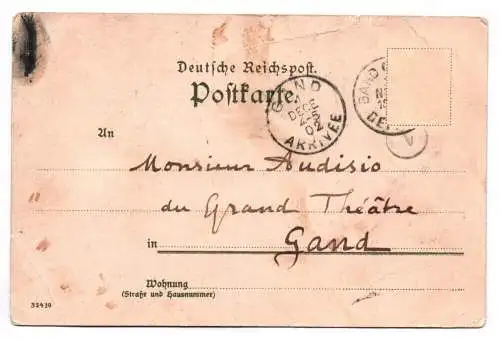 Deutsche Reichspost.
Postkarte.
GAND
DEC
ARRIVÉE
GAND
An
Monsieur Audisio
du Grand Théâtre
in Gand
Wohnung
(Straße und Hausnummer)
32430